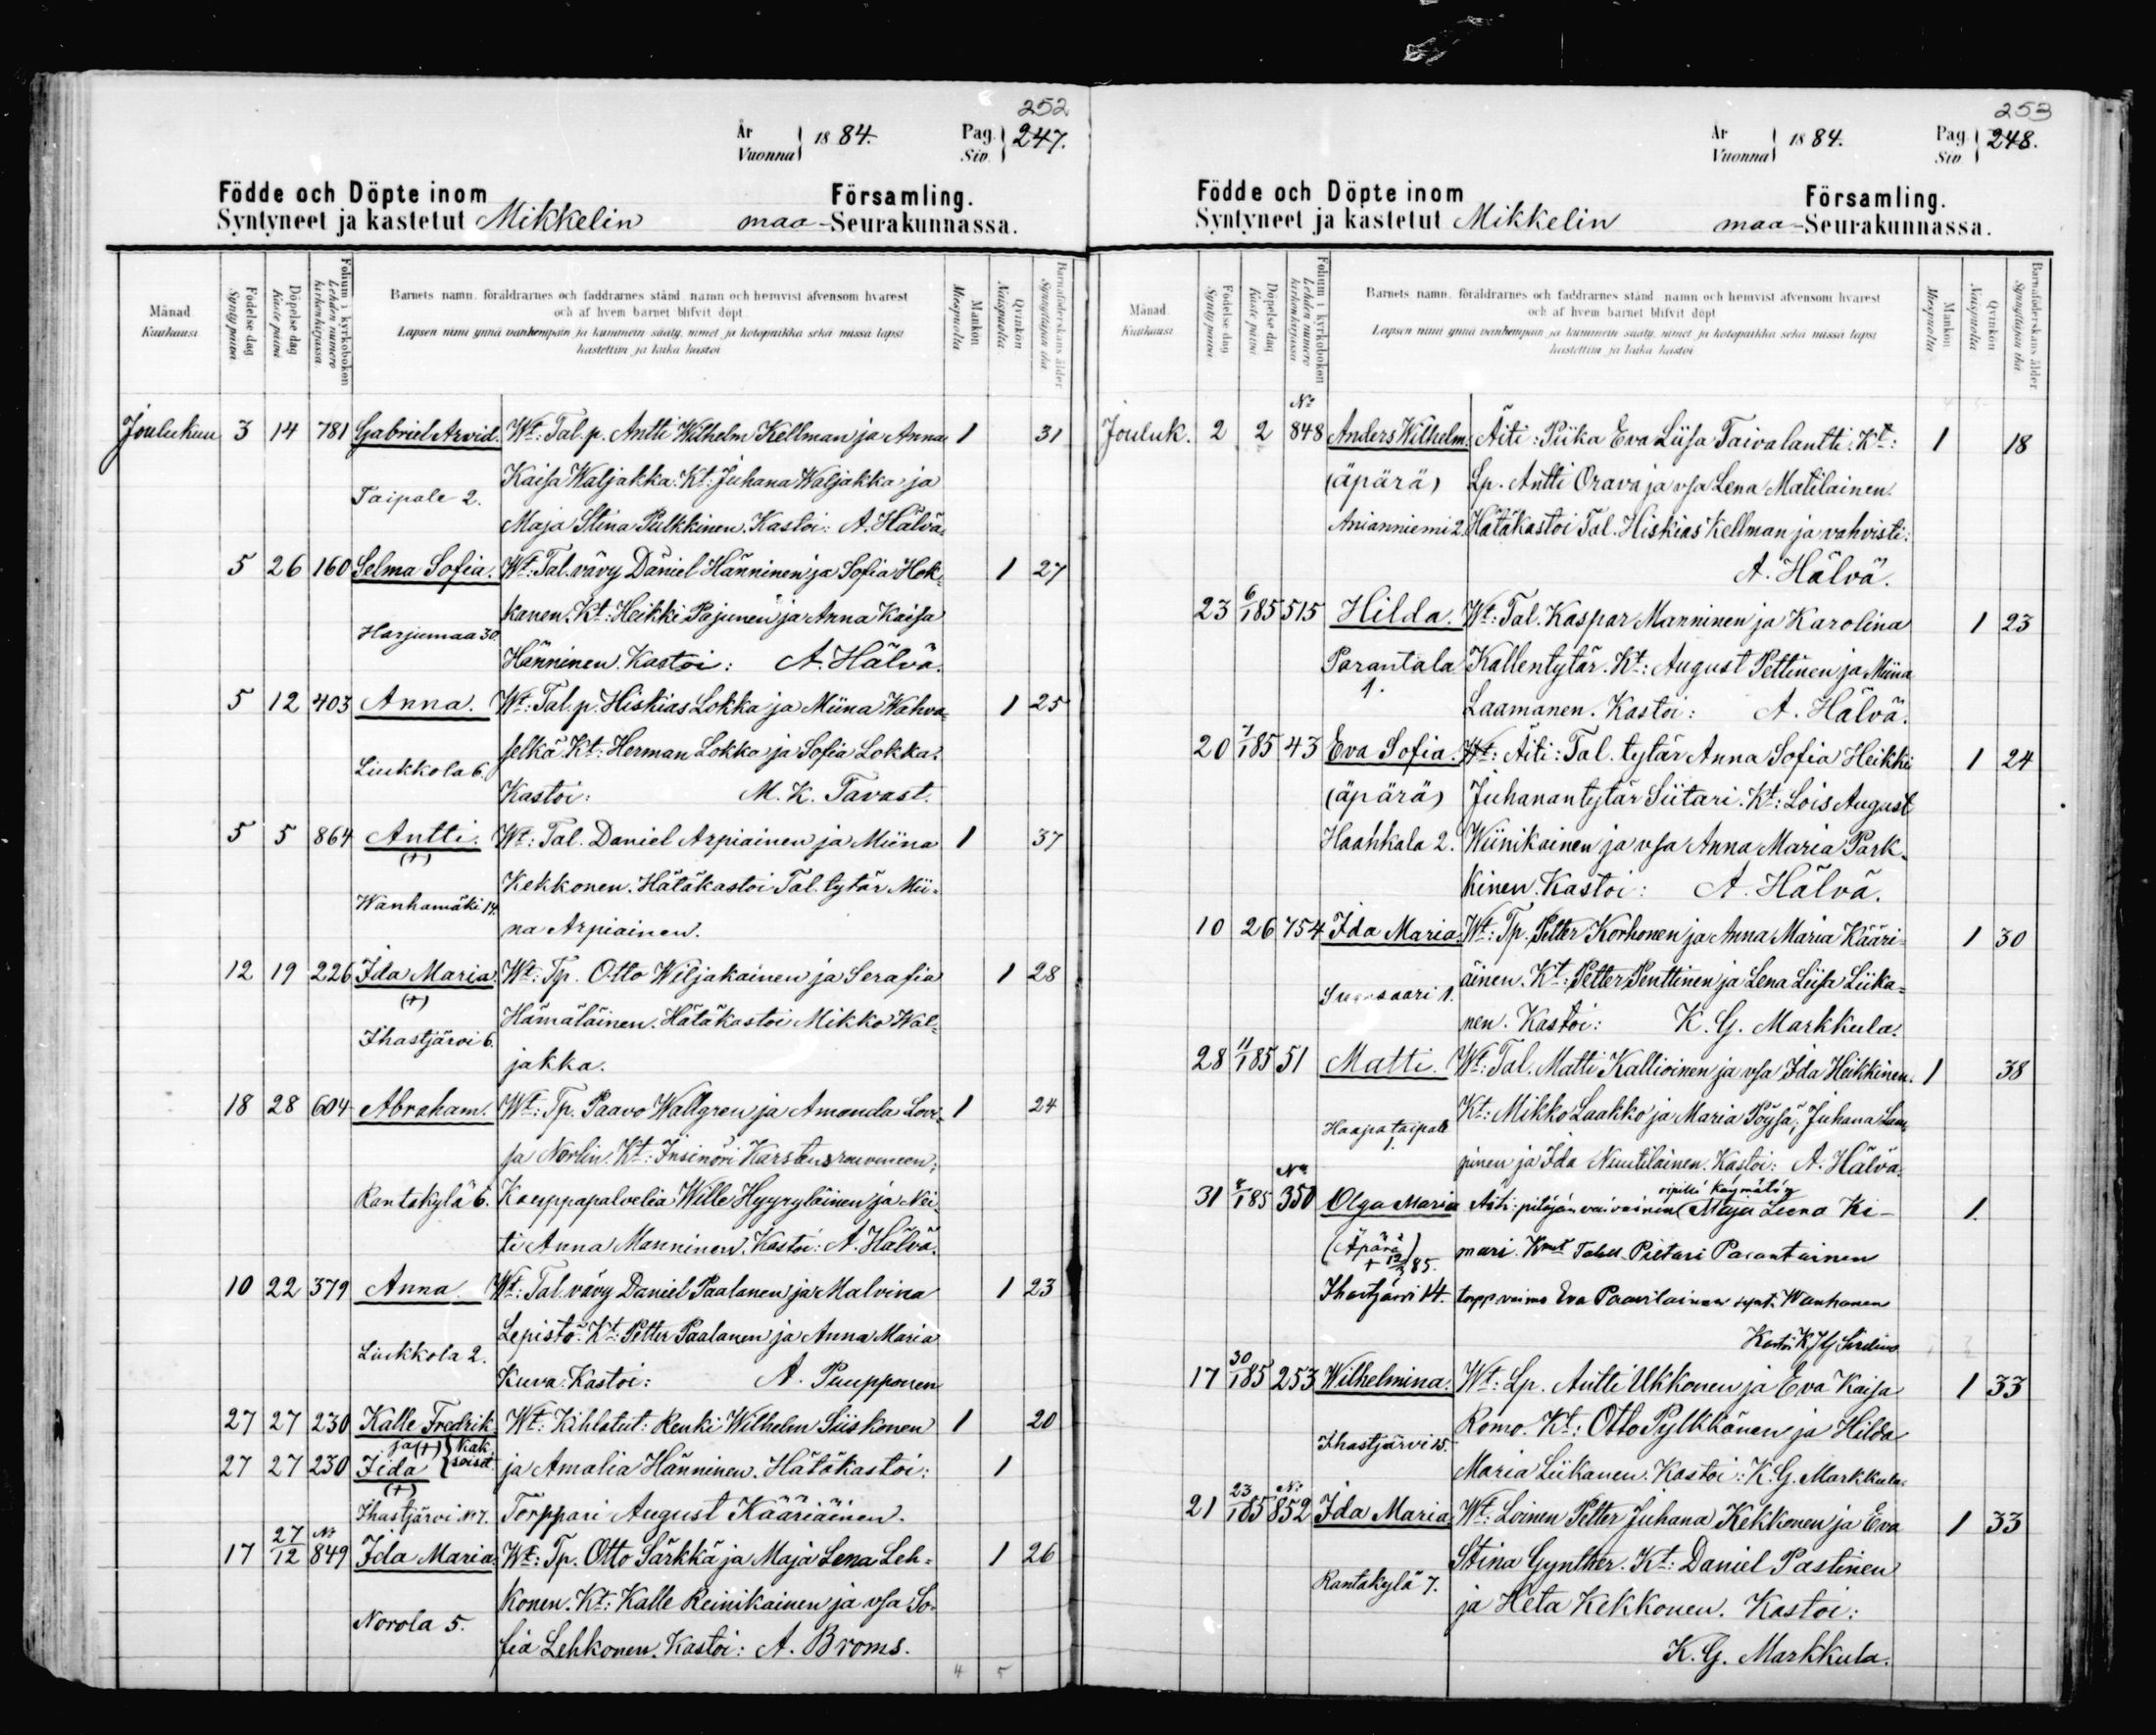 252
År Vuonna 1884. Pag. Siv. 247.
Födde och Döpte inom Församling.
Syntyneet ja kastetut Mikkelin maa-Seurakunnassa.
Månad. Kuukausi
Födelse dag Syntypäivä
Döpelse dag Kaste päivä
Folium i kyrkoboken Lehden numero kirkonkirjassa
Barnets namn, föräldrarnes och faddrarnes stånd, namn och hemvist äfvensom hvarest
och af hvem barnet blifvit döpt
Lapsen nimi ynnä vanhempain ja kummein sääty, nimet ja kotopaikka sekä missä lapsi
kastettiin ja kuka kastoi
Mankön Miespuolia
Qvinkön Naispuolia
Barnaföderskans ålder Synnyttäjän ikä
Joulukuu 3 14 781 Gabriel Arvid. Wt: Tal. p. Antti Wilhelm Kellman ja Anna 1 31
Kaisa Waljakka. Kt: Juhana Waljakka ja
Taipale 2.
Maja Stina Pulkkinen. Kastoi: A. Hälvä.
5 26 160 Selma Sofia. Wt: Tal. vävy Daniel Hänninen ja Sofia Hok- 1 27
kanen. Kt: Heikki Pajunen ja Anna Kaisa
Harjumaa 30.
Hänninen. Kastoi: A. Hälvä.
5 12 403 Anna. Wt: Tal. p. Hiskias Lokka ja Miina Wahva- 1 25
selkä. Kt: Herman Lokka ja Sofia Lokka.
Liukkola 6.
Kastoi: M. K. Tavast.
5 5 864 Antti. Wt: Tal. Daniel Arpiainen ja Miina 1 37
(+)
Kekkonen. Hätäkastoi Tal. tytär Mii-
Wanhamäki 14.
na Arpiainen.
12 19 226 Ida Maria. Wt: Tp. Otto Wiljakainen ja Serafia 1 28
(+)
Hämäläinen. Hätäkastoi Mikko Wal-
Ihastjärvi 6.
jakka.
18 28 604 Abraham. Wt: Tp. Paavo Wallgren ja Amanda Lovi- 1 24
sa Norlin. Kt: Insinöri Karstens rouvineen;
Rantakylä 6. Kauppapalvelia Wille Hyyryläinen ja Nei-
ti Anna Manninen. Kastoi: A. Hälvä.
10 22 379 Anna. Wt: Tal. vävy Daniel Paalanen ja Malvina 1 23
Lepistö. Kt: Petter Paalanen ja Anna Maria
Liukkola 2.
Kuva. Kastoi: A. Puupponen
27 27 230 Kalle Fredrik. Wt: Kihlatut: Renki Wilhelm Siiskonen 1 20
ja (+) kak-
27 27 230 Iida soiset. ja Amalia Hänninen. Hätäkastoi: 1
(+)
Ihastjärvi No 7. Torppari August Kääriäinen.
17 27/12 No 849 Ida Maria. Wt: Tp. Otto Särkkä ja Maja Lena Leh- 1 26
konen. Kt: Kalle Reinikainen ja vsa So-
Norola 5.
fia Lehkonen. Kastoi: A. Broms.
4 5
253
År Vuonna 1884. Pag. Siv. 248.
Födde och Döpte inom Församling.
Syntyneet ja kastetut Mikkelin maa-Seurakunnassa.
Månad. Kuukausi
Födelse dag Syntypäivä
Döpelse dag Kaste päivä
Folium i kyrkoboken Lehden numero kirkonkirjassa
Barnets namn, föräldrarnes och faddrarnes stånd, namn och hemvist äfvensom hvarest
och af hvem barnet blifvit döpt
Lapsen nimi ynnä vanhempain ja kummein sääty, nimet ja kotopaikka sekä missä lapsi
kastettiin ja kuka kastoi
Mankön Miespuolia
Qvinkön Naispuolia
Barnaföderskans ålder Synnyttäjän ikä
No
Jouluk. 2 2 848 Anders Wilhelm. Äiti: Piika Eva Liisa Taivalantti. Kt: 1 18
(äpärä) Lp. Antti Orava ja vsa Lena Matilainen.
Anianniemi 2. Hätäkastoi Tal. Hiskias Kellman ja vahvisti:
A. Hälvä.
23 6/1 85 515 Hilda. Wt: Tal. Kaspar Manninen ja Karolina 1 23
Parantala Kallentytär. Kt: August Pettinen ja Miina
1.
Laamanen. Kastoi: A. Hälvä.
20 7/1 85 43 Eva Sofia. Wt: Äiti: Tal. tytär Anna Sofia Heikki 1 24
(äpärä) Juhanantytär Siitari. Kt: Lois August
Haahkala 2. Wiinikainen ja vsa Anna Maria Park-
kinen. Kastoi: A. Hälvä.
10 26 754 Ida Maria. Wt: Tp. Petter Korhonen ja Anna Maria Kääri- 1 30
äinen. Kt: Petter Penttinen ja Lena Liisa Liika-
nen. Kastoi: K. G. Markkula.
28 11/1 85 51 Matti. Wt: Tal. Matti Kallioinen ja vsa Ida Heikkinen. 1 38
Kt: Mikko Laakko ja Maria Pöysä; Juhana Lam-
Haapataipale
1.
pinen ja Ida Nuutilainen. Kastoi: A. Hälvä.
No ripillä käymätöy
31 8/1 85 350 Olga Maria Äiti: pitäjän vaivainen Maja Leena Ki- 1.
(Äpärä) mari. Kmt Talll. Pietari Parantainen
+ 12/3 85.
Ihastjärvi 14. torpp. vaimo Eva Paavilainen synt. Wanhanen
Kastoi K J G Sirelius
17 30/1 85 253 Wilhelmina. Wt: Lp. Antti Ukkonen ja Eva Kaisa 1 33
Romo. Kt: Otto Pylkkänen ja Hilda
Ihastjärvi 15.
Maria Liikanen. Kastoi: K. G. Markkula.
21 23/1 85 No 852 Ida Maria Wt: Loinen Petter Juhana Kekkonen ja Eva 1 33
Stina Gynther. Kt: Daniel Pastinen
Rantakylä 7.
ja Heta Kekkonen. Kastoi:
K. G. Markkula.